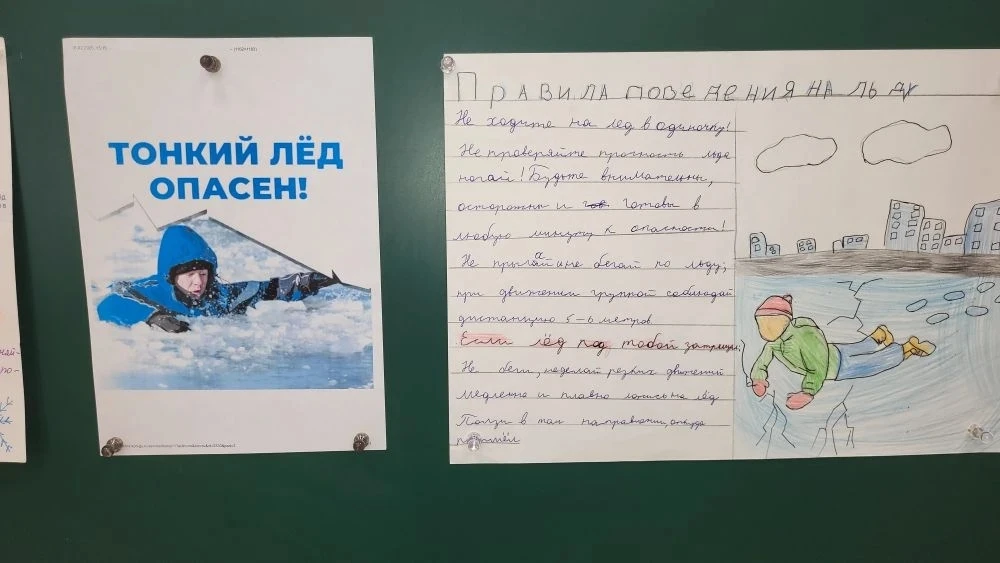 ТОНКИЙ ЛЁД
ОПАСЕН!
ПРАВИЛА ПОВЕДЕНИЯ НА ЛЬДУ
Не ходите на лёд в одиночку!
Не проверяйте прочность льда
ногай! Будьте внимательны,
осторожны и гов готовы в
любую минуту к опасности!
Не прыгай и не бегай по льду;
при движении группой соблюдай
дистанцию 5-6 метров.
Если лёд под тобой затрещал:
Не беги, не делай резких движений
медленно и плавно ложись на лёд
Ползи в том направлении, откуда
пришёл